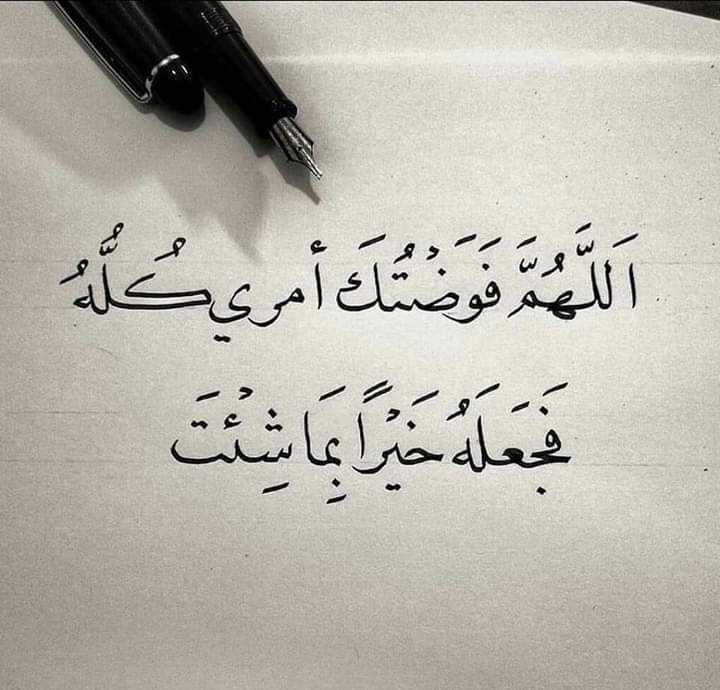 اَللَّهُمَّ فَوَضْتُكَ أمري كُلُّهُ
فَجَعَلَهُ خَيْرًا بِمَا شِئْتَ